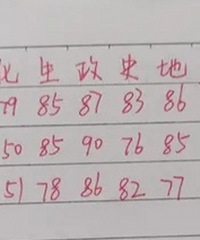 化 生 政 史 地
79 85 87 83 86
50 85 90 76 85
51 78 86 82 77